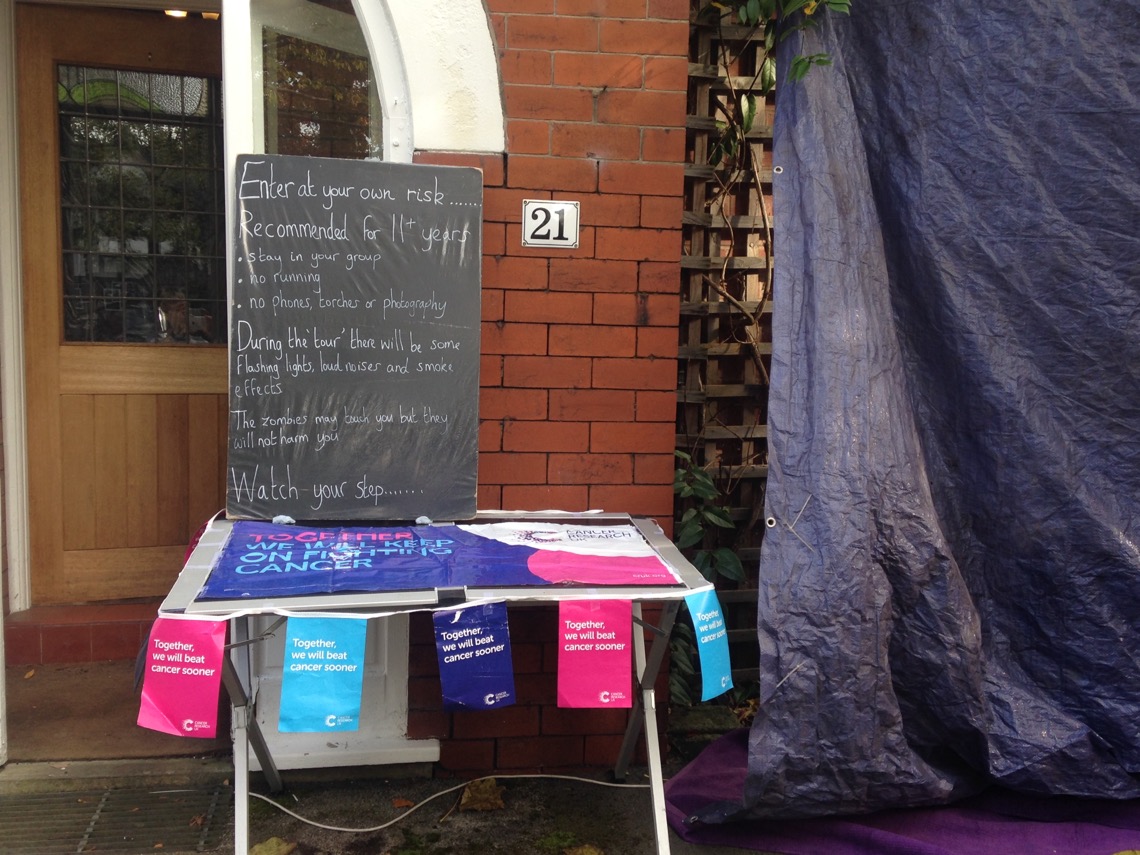 Enter at your own risk.......
Recommended for 11+ years
• stay in your group
• no running
• no phones, torches or photography
During the 'tour' there will be some
flashing lights, loud noises and smoke
effects
The zombies may touch you but they
will not harm you
Watch your step.......
21
TOGETHER
WE WILL KEEP
ON FIGHTING
CANCER
CANCER
RESEARCH
UK
Together,
we will beat
cancer sooner
CANCER
RESEARCH
UK
Together,
we will beat
cancer sooner
CANCER
RESEARCH
UK
Together,
we will beat
cancer sooner
Together,
we will beat
cancer sooner
CANCER
RESEARCH
UK
Together,
we will beat
cancer sooner